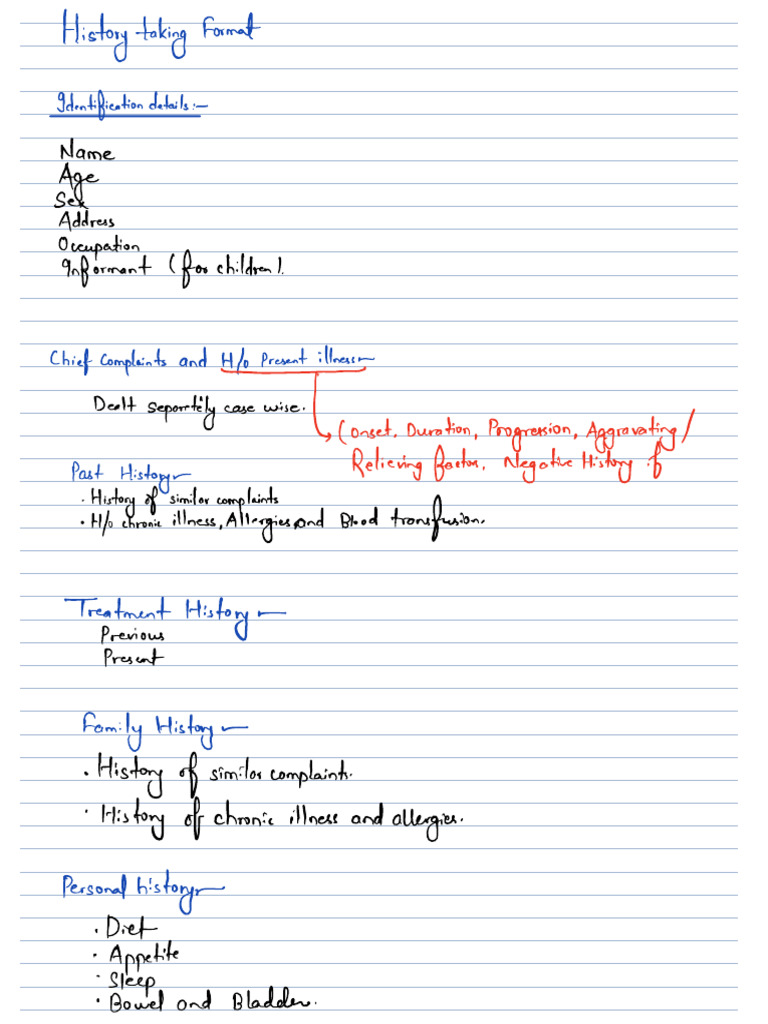 History taking Format
Identification details:-
Name
Age
Sex
Address
Occupation
Informant (for children).
Chief Complaints and H/o Present illness-
Dealt seperately case wise.
(Onset, Duration, Progression, Aggravating/
Relieving factor, Negative History if
Past History-
· History of similar complaints
· H/o chronic illness, Allergies, and Blood transfusion.
Treatment History-
Previous
Present
Family History-
· History of similar complaints.
· History of chronic illness and allergies.
Personal history-
· Diet
· Appetite
· Sleep
· Bowel and Bladder.